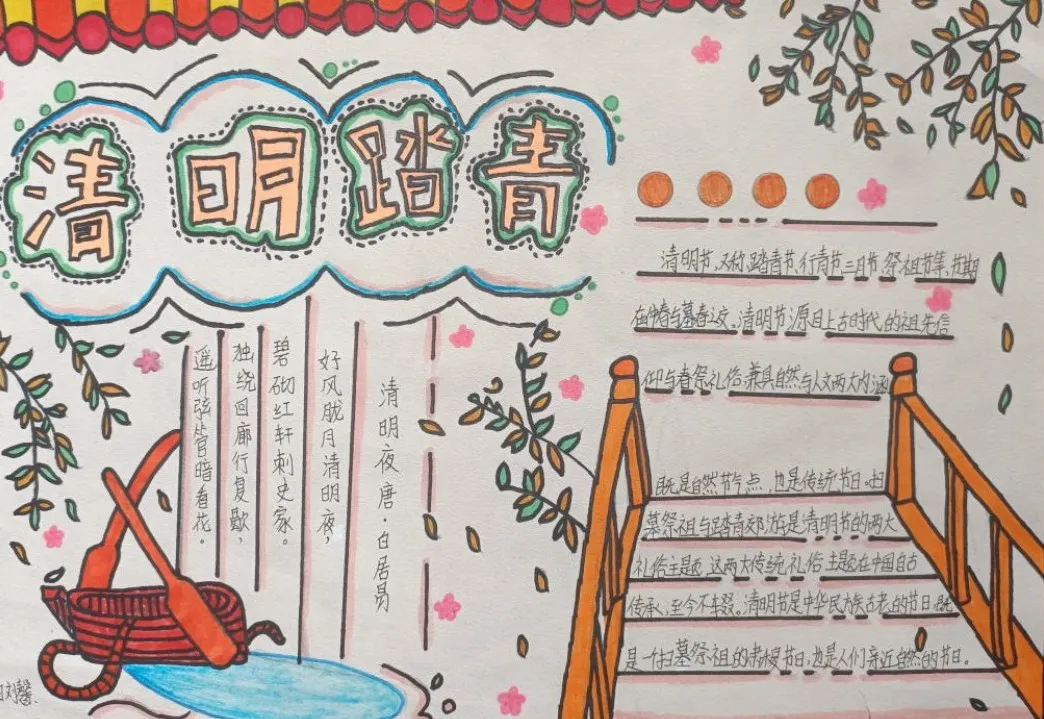 清明踏青
清明夜 唐·白居易
好风胧月清明夜,
碧砌红轩刺史家。
独绕回廊行复歇,
遥听弦管暗看花。
清明节,又称踏青节、行青节、三月节、祭祖节等,节期
在仲春与暮春之交。清明节源自上古时代的祖先信
仰与春祭礼俗,兼具自然与人文两大内涵
既是自然节气点,也是传统节日。扫
墓祭祖与踏青郊游是清明节的两大
礼俗主题,这两大传统礼俗主题在中国自古
传承,至今不辍。清明节是中华民族古老的节日,既
是一个扫墓祭祖的肃穆节日,也是人们亲近自然的节日。
刘馨